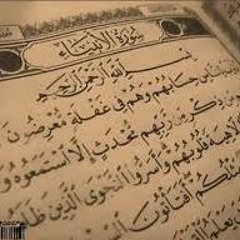 سُورَةُ الْأَنبِيَاءِ
بِسْمِ اللَّهِ الرَّحْمَٰنِ الرَّحِيمِ
حِسَابُهُمْ وَهُمْ فِي غَفْلَةٍ مُّعْرِضُونَ
مِّن ذِكْرٍ مِّن رَّبِّهِم مُّحْدَثٍ إِلَّا اسْتَمَعُوهُ وَ
لَاهِيَةً قُلُوبُهُمْ وَأَسَرُّوا النَّجْوَى الَّذِينَ
مِّثْلُكُمْ أَفَتَأْتُونَ
يَعْلَمُ